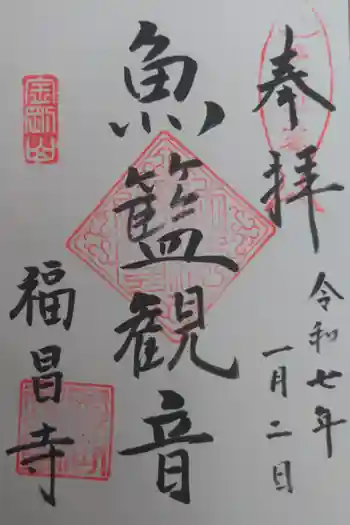 奉拝
令和七年
一月二日
魚籃観音
金剛山
福昌寺